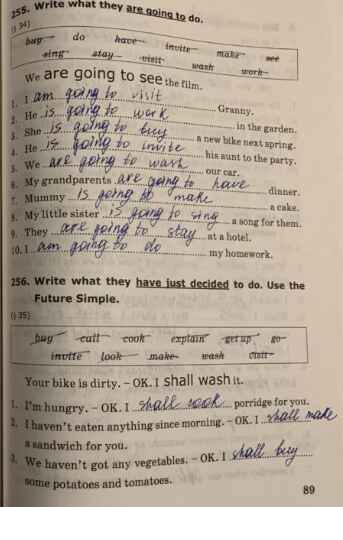 255. Write what they are going to do.
(§ 34)
buy do have invite make see
sing stay visit wash work
We are going to see the film.
1. I am going to visit Granny.
2. He is going to work in the garden.
3. She is going to buy a new bike next spring.
4. He is going to invite his aunt to the party.
5. We are going to wash our car.
6. My grandparents are going to have dinner.
7. Mummy is going to make a cake.
8. My little sister is going to sing a song for them.
9. They are going to stay at a hotel.
10. I am going to do my homework.
256. Write what they have just decided to do. Use the
Future Simple.
(§ 35)
buy call cook explain get up go
invite look make wash visit
Your bike is dirty. – OK. I shall wash it.
1. I'm hungry. – OK. I shall cook porridge for you.
2. I haven't eaten anything since morning. – OK. I shall make
a sandwich for you.
3. We haven't got any vegetables. – OK. I shall buy
some potatoes and tomatoes.
89